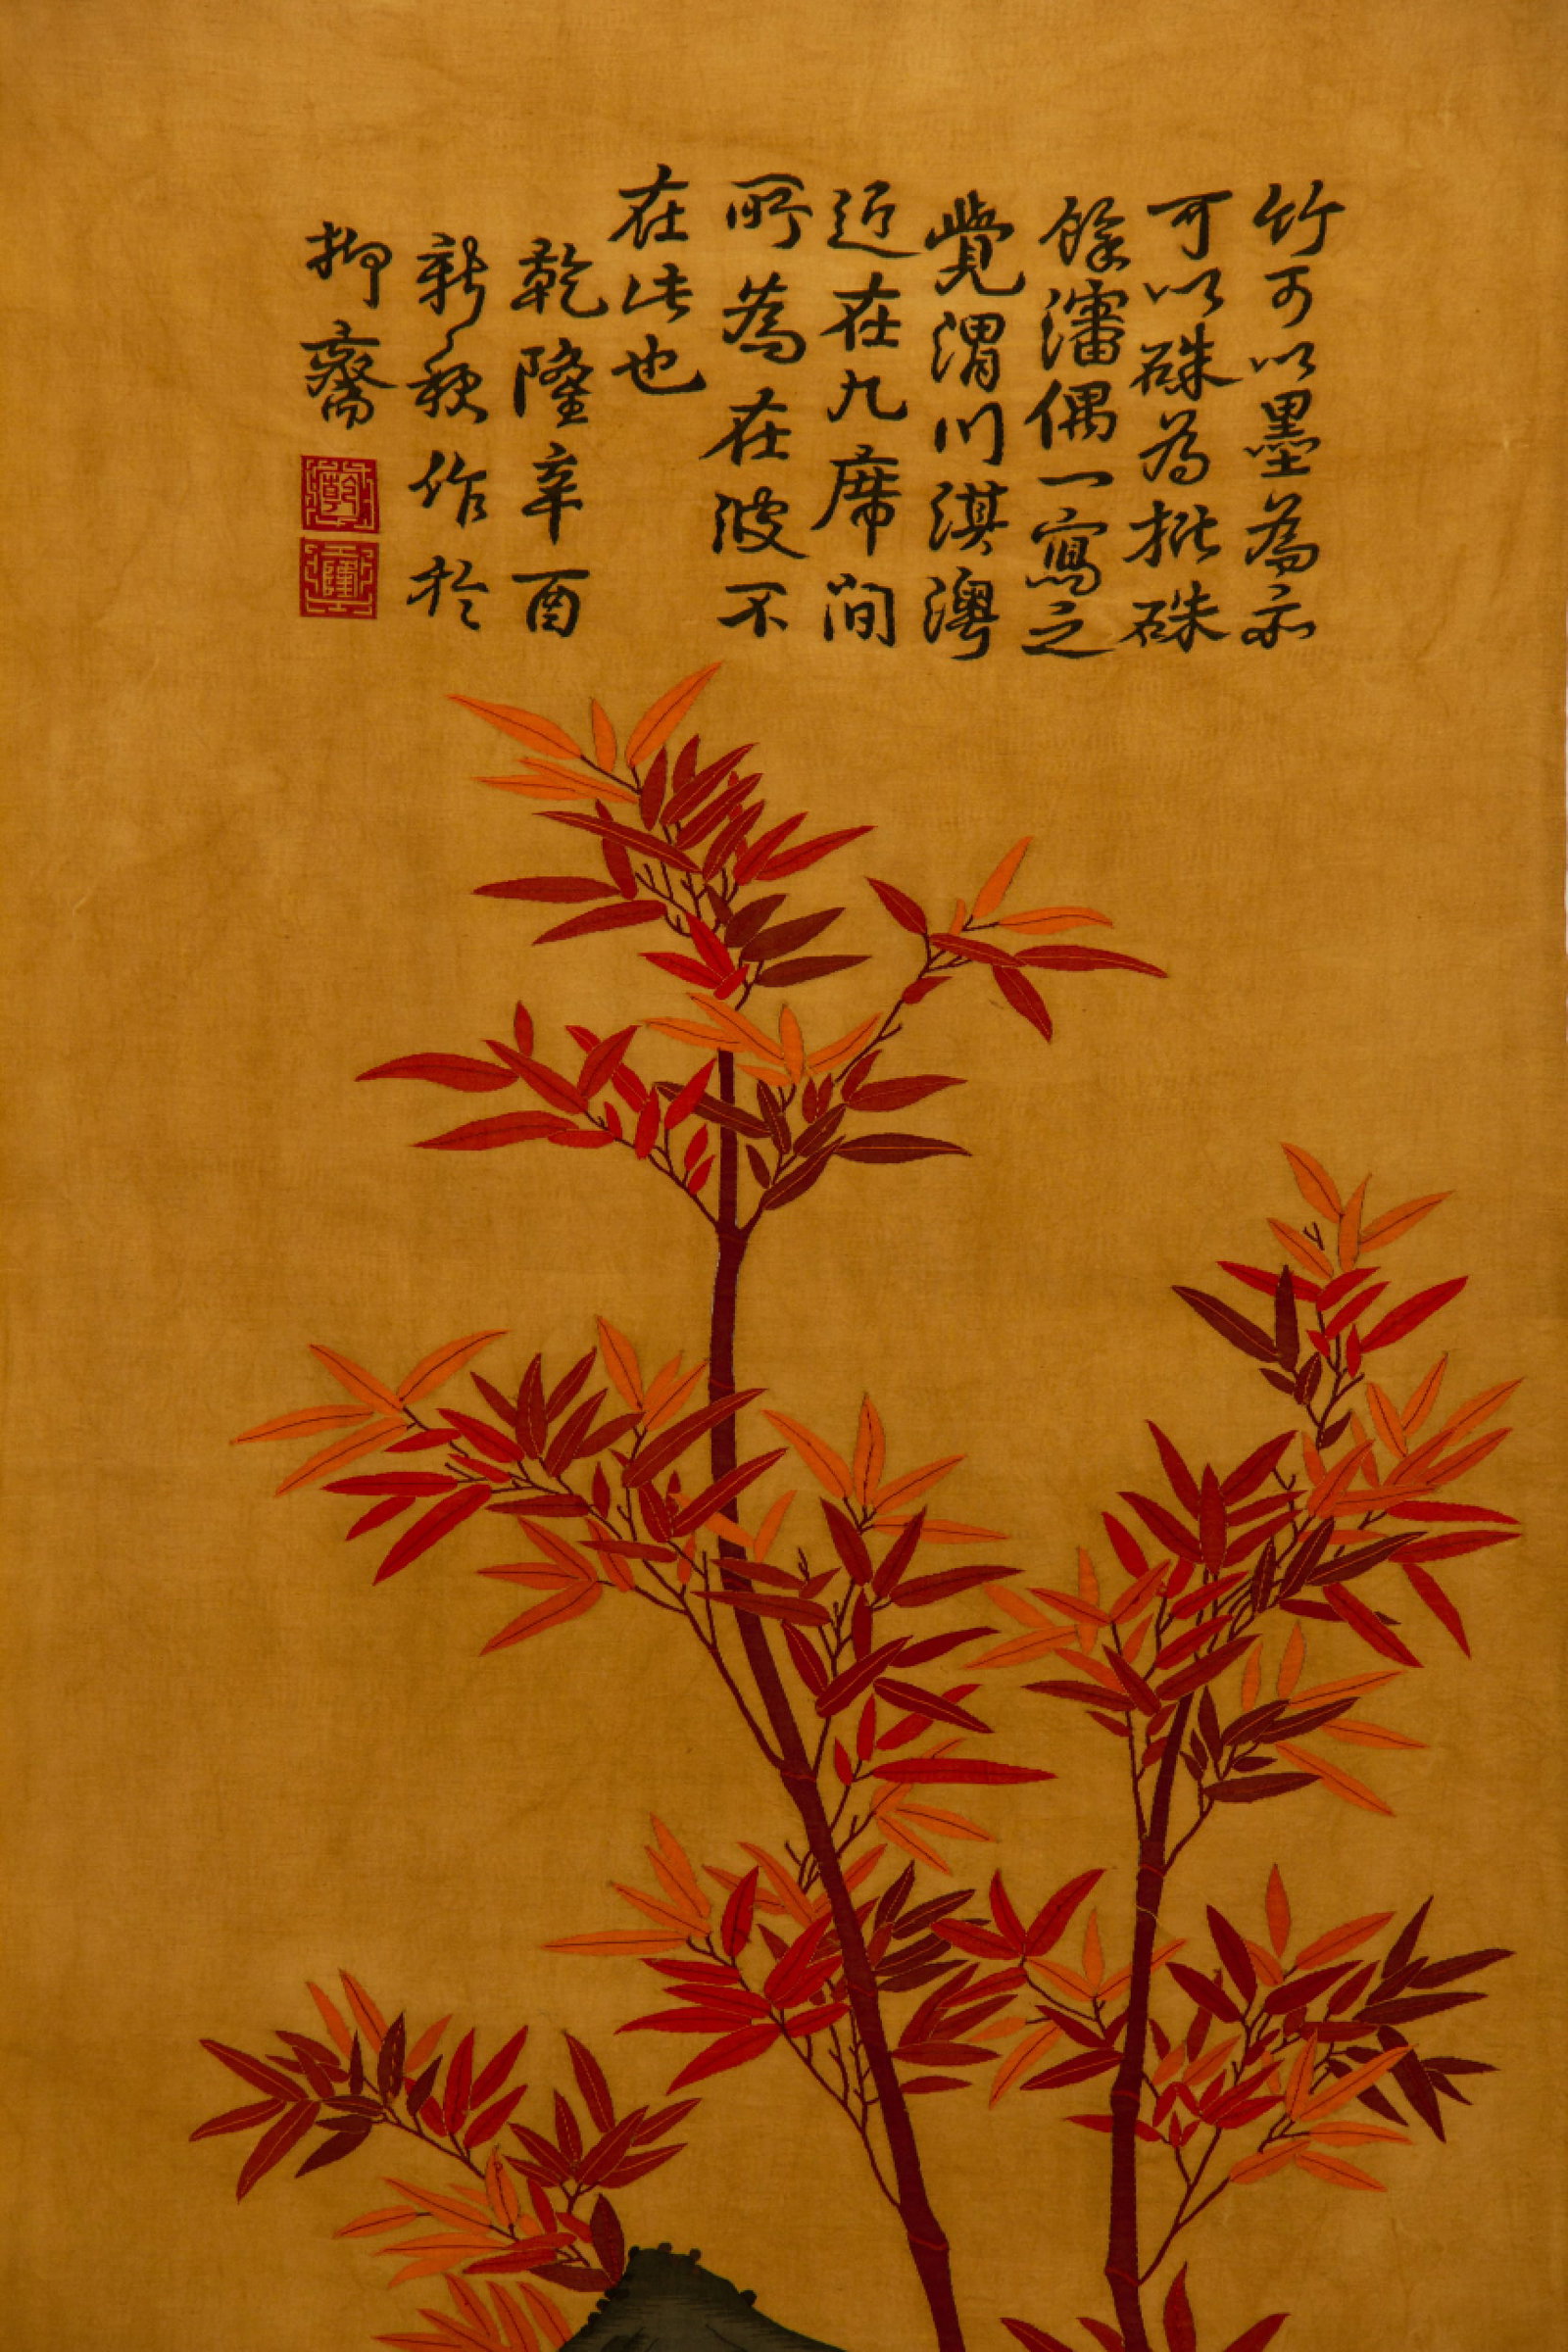 竹可以墨為亦
可以硃為批硃
餘瀋偶一寫之
覺渭川淇澳
近在几席間
所為在彼不
在此也
乾隆辛酉
新秋作於
抑齋
乾
隆